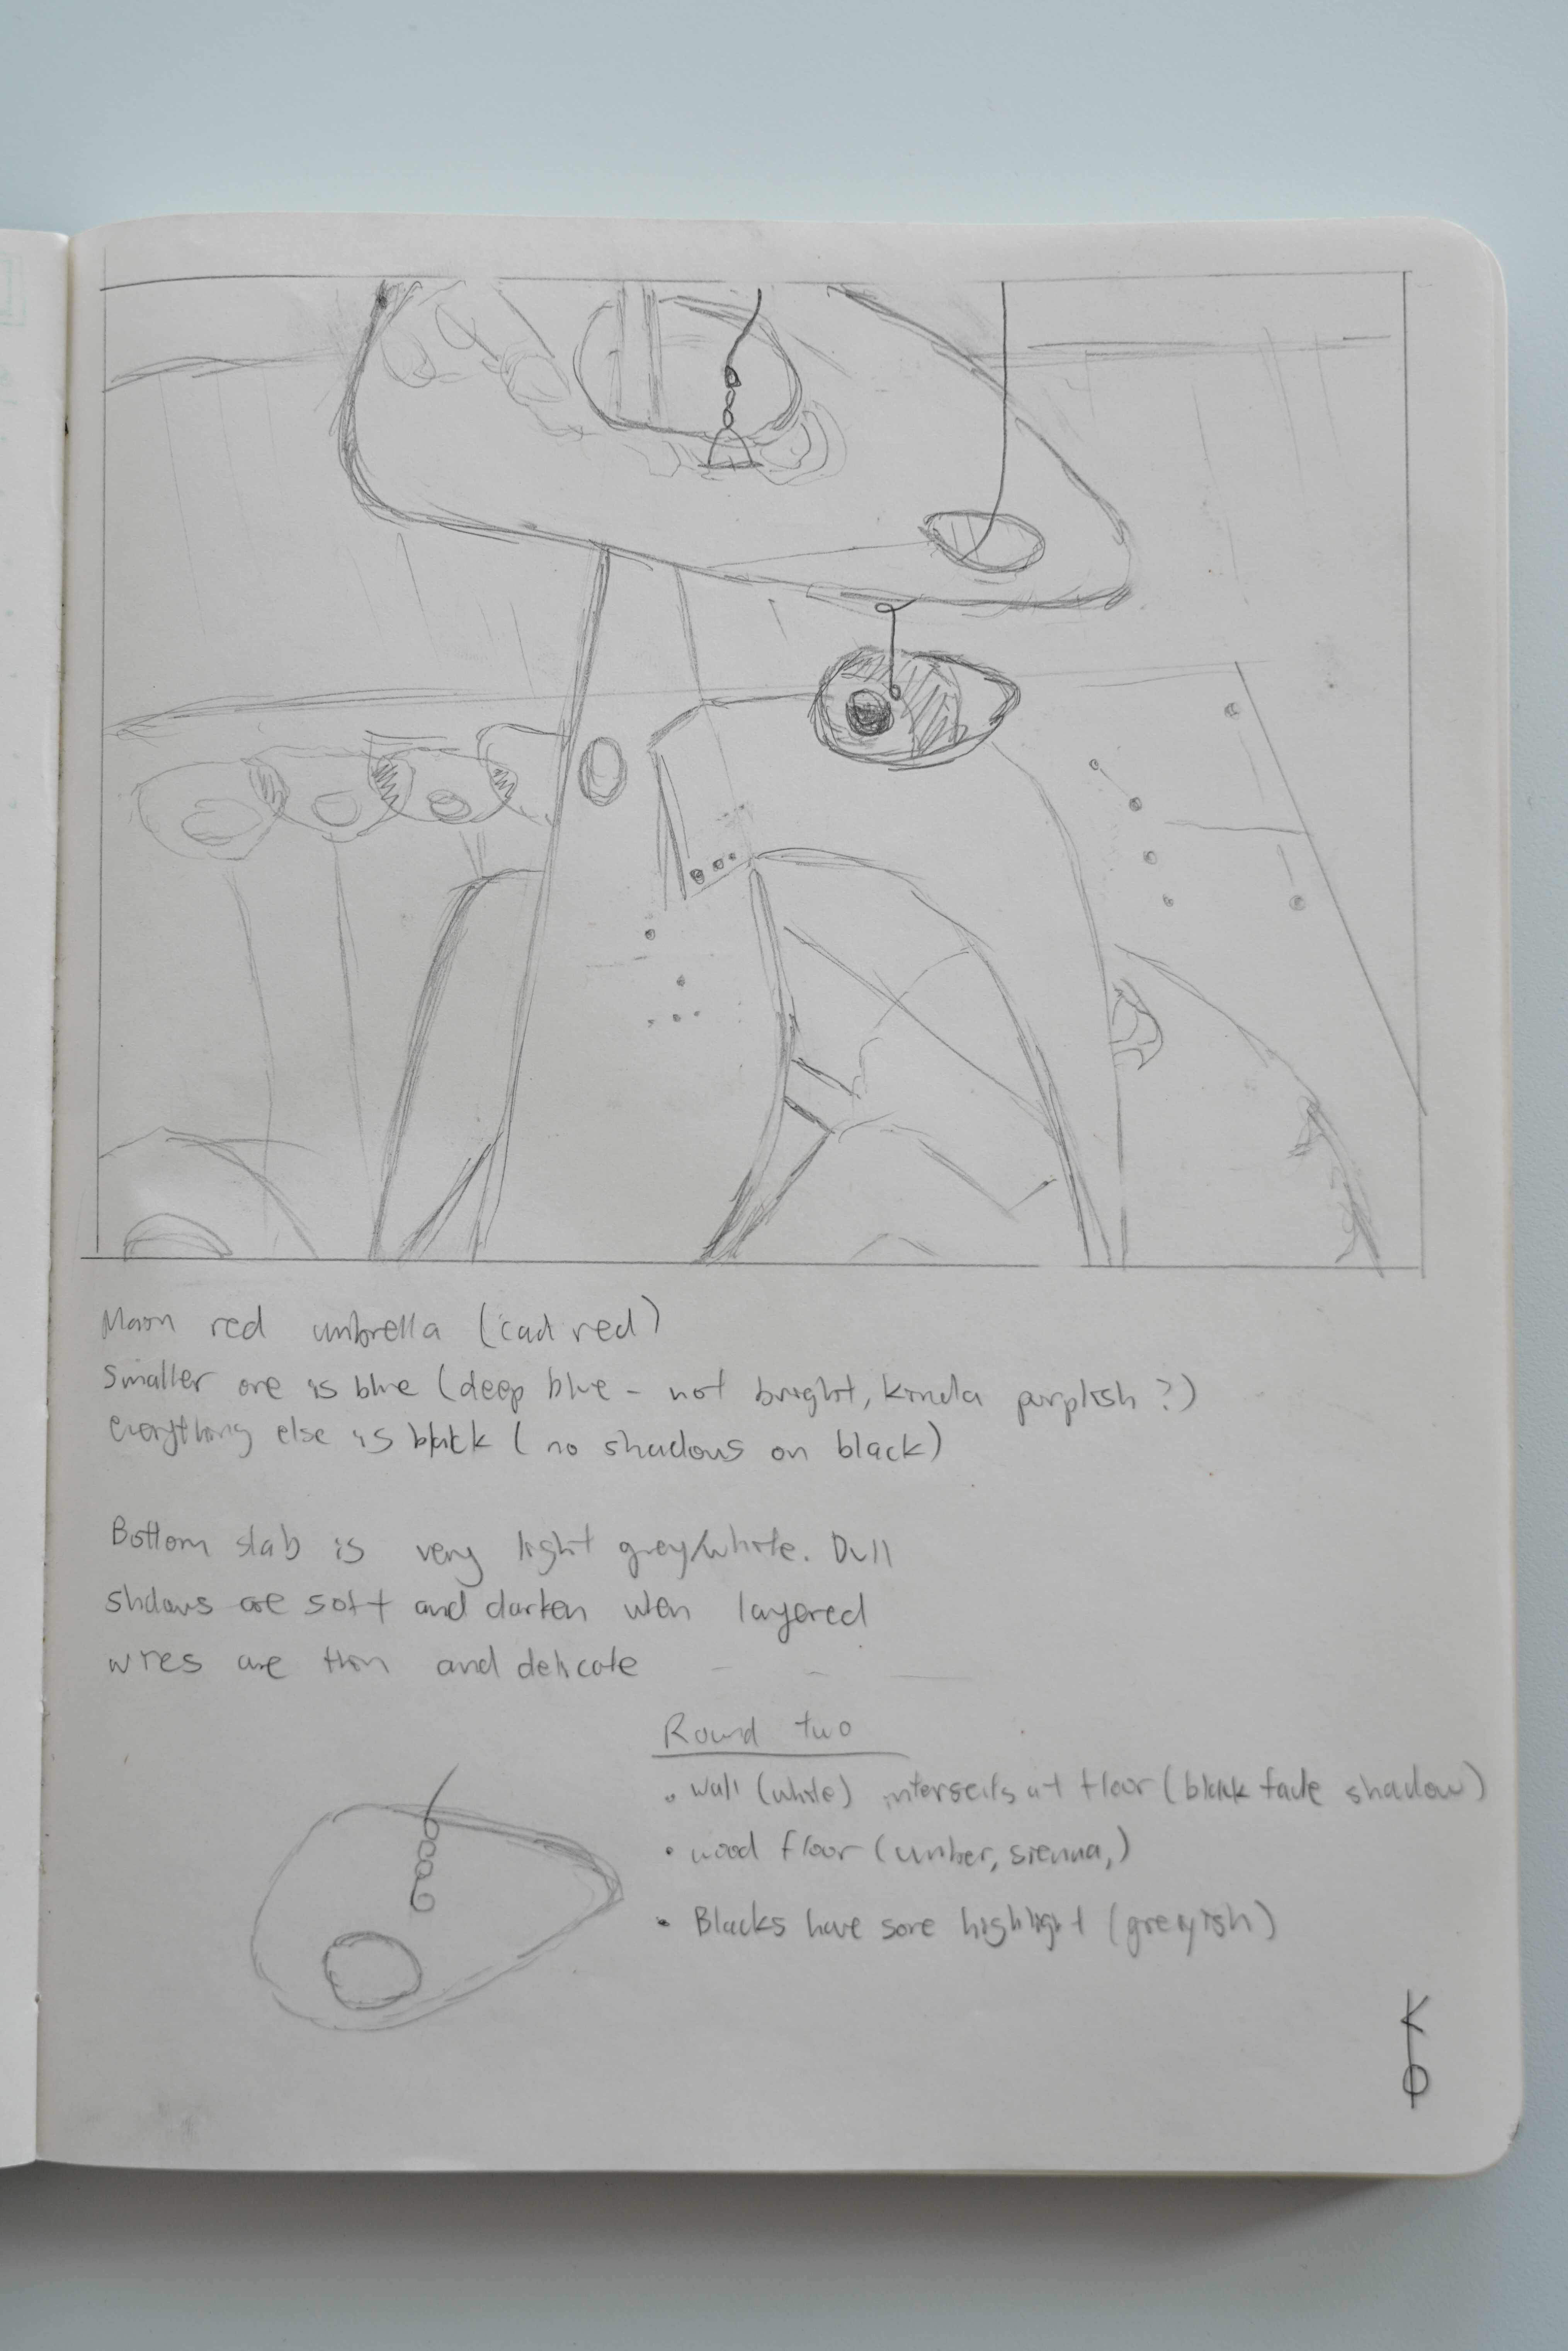 Main red umbrella (cad red)
Smaller one is blue (deep blue - not bright, kinda purplish?)
everything else is black (no shadows on black)
Bottom slab is very light grey/white. Dull
shdows are soft and darken when layered
wires are thin and delicate
Round two
• wall (white) intersects at floor (black fade shadow)
• wood floor (umber, sienna,)
• Blacks have some highlight (greyish)
KO